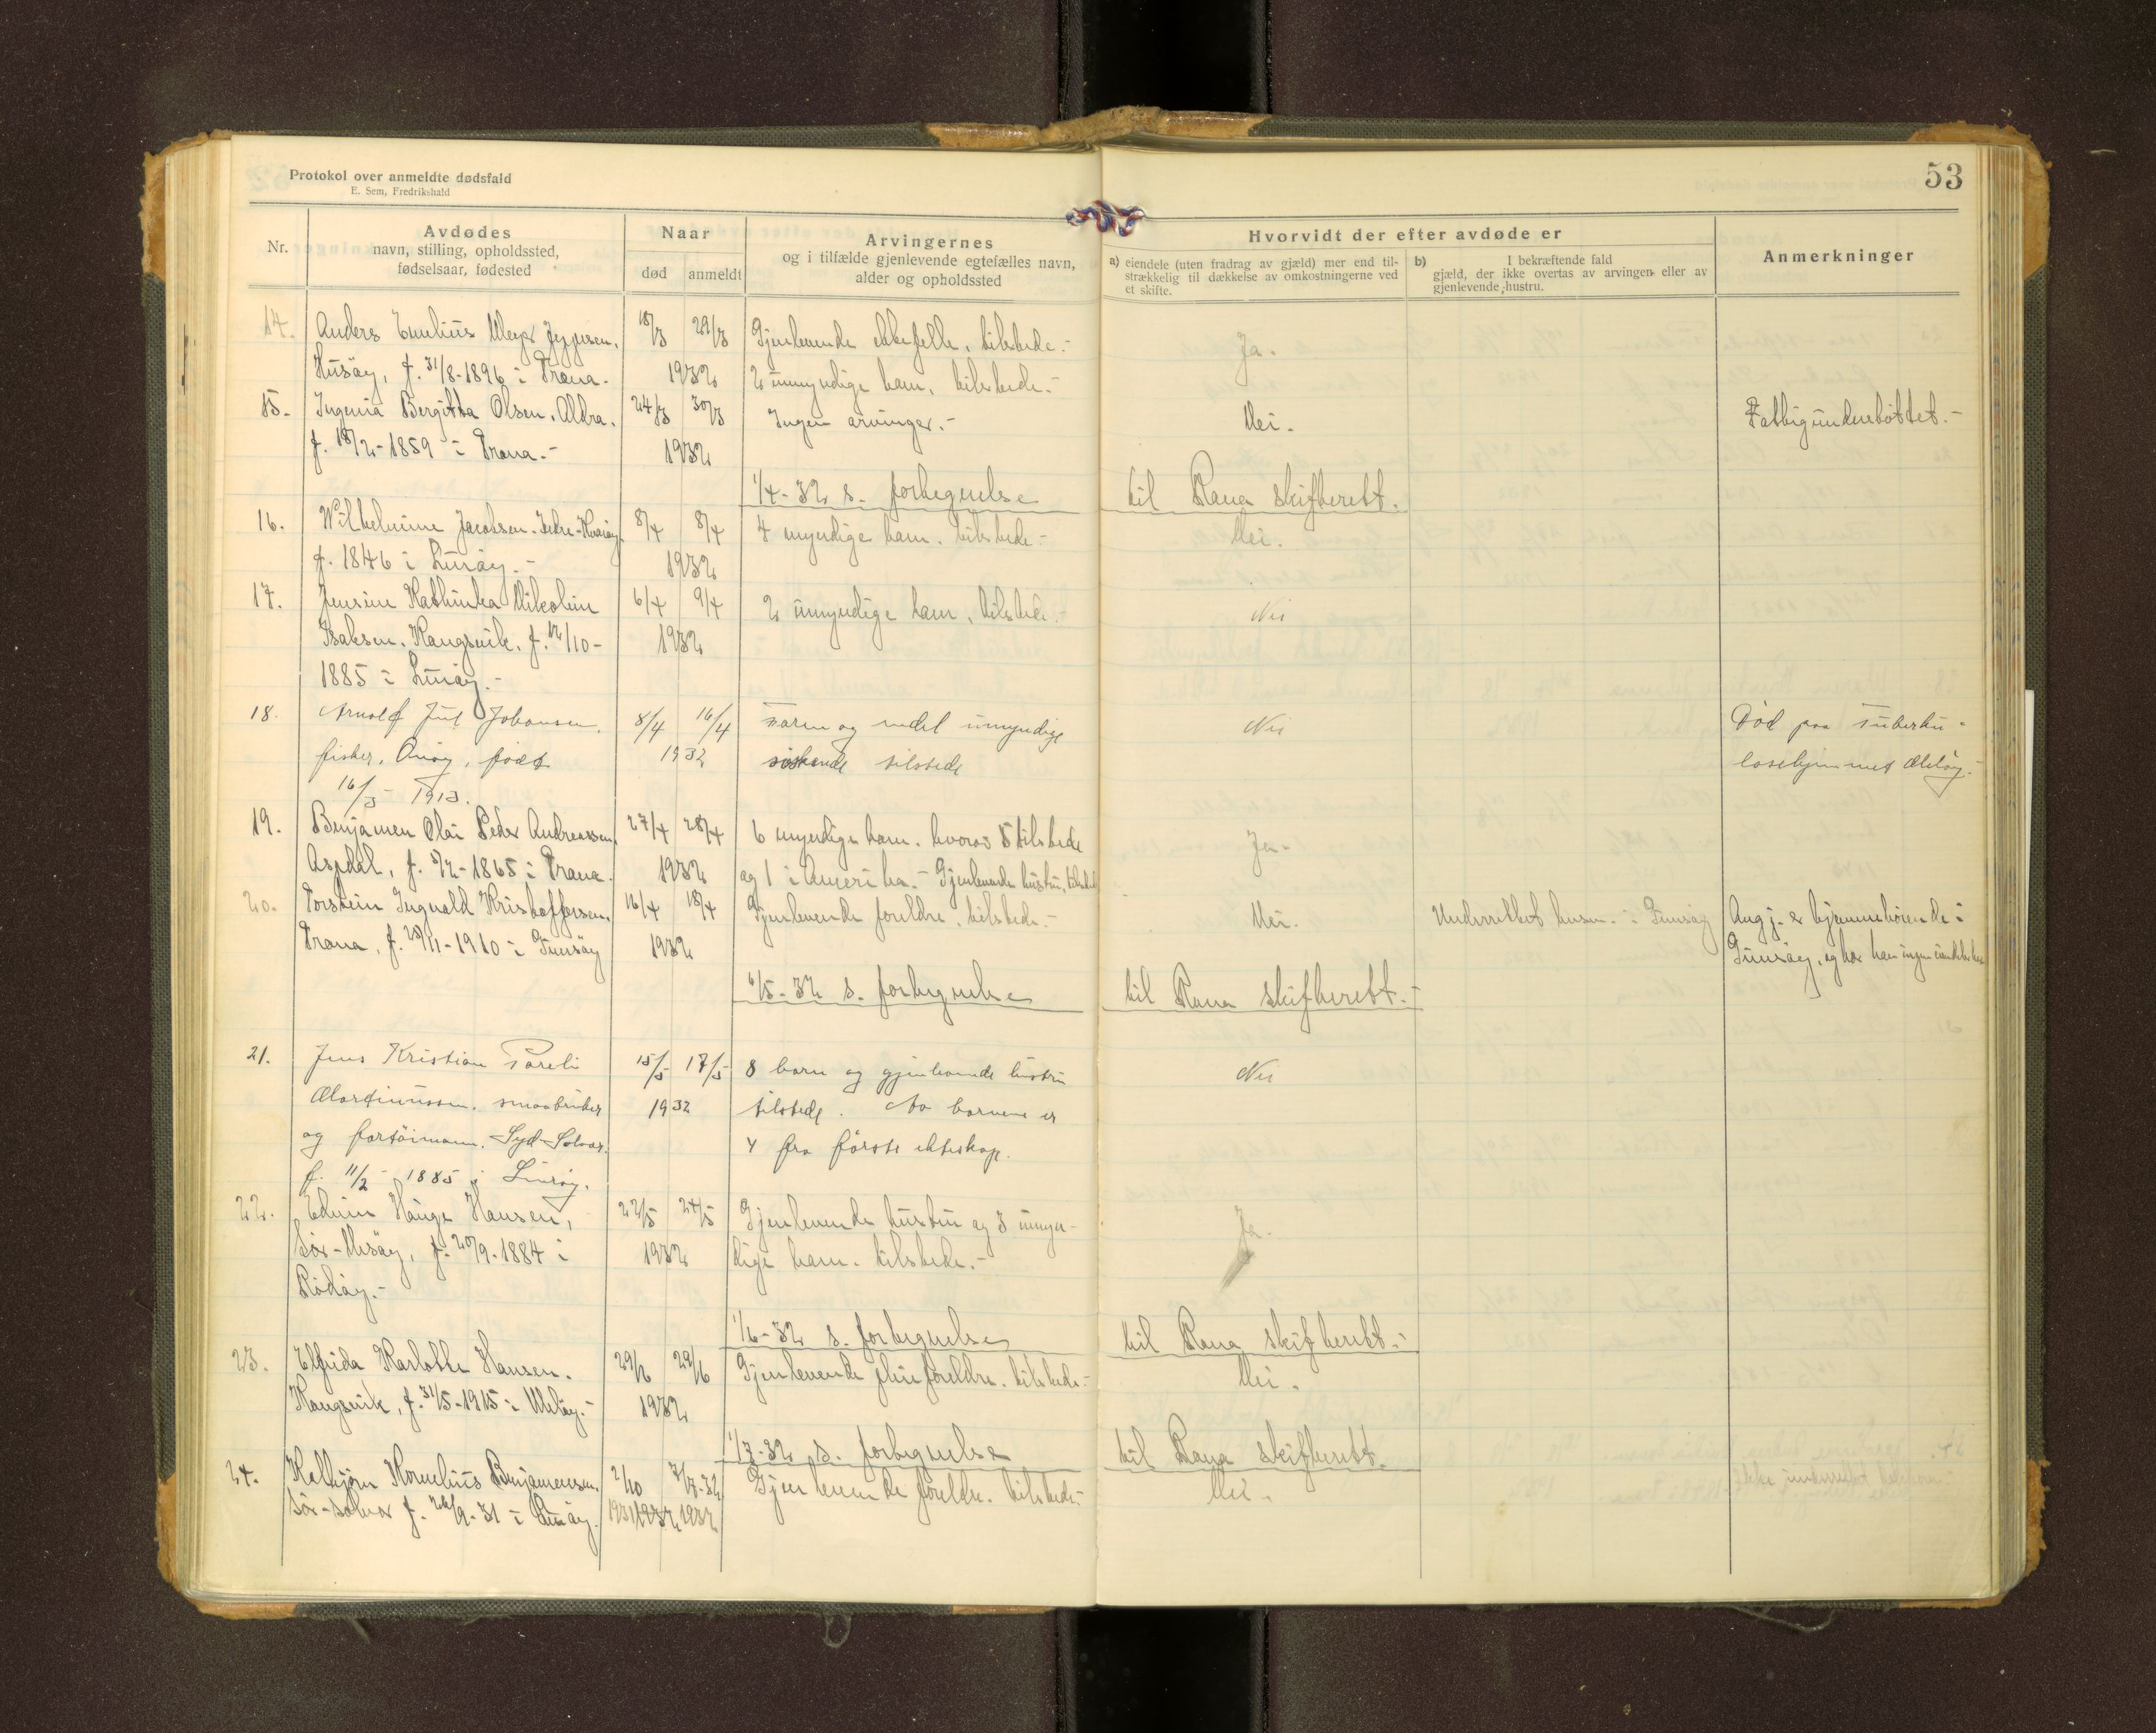 Protokol over anmeldte dødsfald
E. Sem, Fredrikshald
53
Nr.
Avdødes
navn, stilling, opholdssted,
fødselsaar, fødested
Naar
død
anmeldt
Arvingernes
og i tilfælde gjenlevende egtefælles navn,
alder og opholdssted
Hvorvidt der efter avdøde er
a) eiendele (uten fradrag av gjæld) mer end til-
strækkelig til dækkelse av omkostningerne ved
et skifte.
b) I bekræftende fald
gjæld, der ikke overtas av arvingen eller av
gjenlevende hustru.
Anmerkninger
14. Anders Emilius Meyer Jeppesen, 18/3 29/3 Gjenlevende ektefelle, tilstede.- Ja.
Husöy, f. 31/8-1896 i Træna. 1932 2 umyndige barn, tilstede.-
15. Ingenia Bergitta Olsen, Aldra, 24/3 30/3 Ingen arvinger.- Nei. Fattigunderstöttet.-
f. 18/2-1859 i Træna.- 1932
1/4-32 s. forteguelse til Rana skifterett.
16. Wilhelmine Jacobsen, Indre-Kvaröy 8/4 8/4 4 myndige barn, tilstede.- Nei.
f. 1846 i Luröy.- 1932
17. Jensine Kathinka Nikoline 6/4 9/4 2 umyndige barn, tilstede.- Nei
Isaksen, Haugsvik, f. 12/10- 1932
1885 i Luröy.-
18. Arnolf Jul Johansen, 8/4 16/4 Faren og endel umyndige Nei Död paa tuberku-
fisker, Onöy, født 1932 söskende tilstede losehjemmet Alstöy.-
16/5 1913.
19. Benjamen Olai Peder Andreassen, 27/4 28/4 6 myndige barn, hvorav 5 tilstede Ja.-
Aspdal, f. 5/2-1865 i Træna. 1932 og 1 i Amerika.- Gjenlevende hustru, tilstede
20. Torstein Ingvald Kristoffersen, 16/4 18/4 Gjenlevende foreldre, tilstede.- Nei. Underrettet lensm. i Gimsöy Angj. er hjemmehörende i
Træna, f. 23/11-1910 i Gimsöy 1932 Gimsöy, og har han ingen eiendeler her
6/5-32 s. forteguelse til Rana skifterett.-
21. Jens Kristian Pareli 15/5 17/5 8 barn og gjenlevende hustru Nei
Martinussen, smaabruker 1932 tilstede. Av barnene er
og fartöimann, Syd-Solvær. 4 fra förste ekteskap.
f. 11/2 1885 i Luröy.
22. Edvin Hauge Hansen, 22/5 24/5 Gjenlevende hustru og 3 umyn- Ja.
Sör-Nesöy, f. 20/9-1884 i 1932 dige barn, tilstede.-
Rödöy.-
1/6-32 s. forteguelse til Rana skifterett.-
23. Elfrida Karlotte Hansen, 29/6 29/6 Gjenlevende pleieforeldre, tilstede.- Nei.
Haugsvik, f. 31/5-1915 i Meløy.- 1932
1/7-32 s. forteguelse til Rana skifterett.
24. Kolbjörn Kornelius Benjamensen, 2/10 7/7-32 Gjenlevende foreldre, tilstede.- Nei.
Sör-Solvær f. 26/9-31 i Luröy. 1931 1932